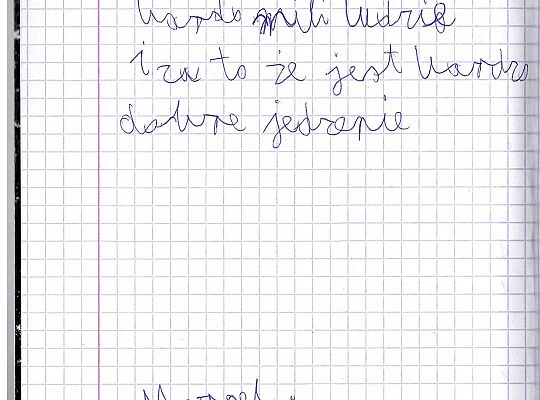 bardo mili ludzie
i za to że jest bardzo
dobre jedzenie